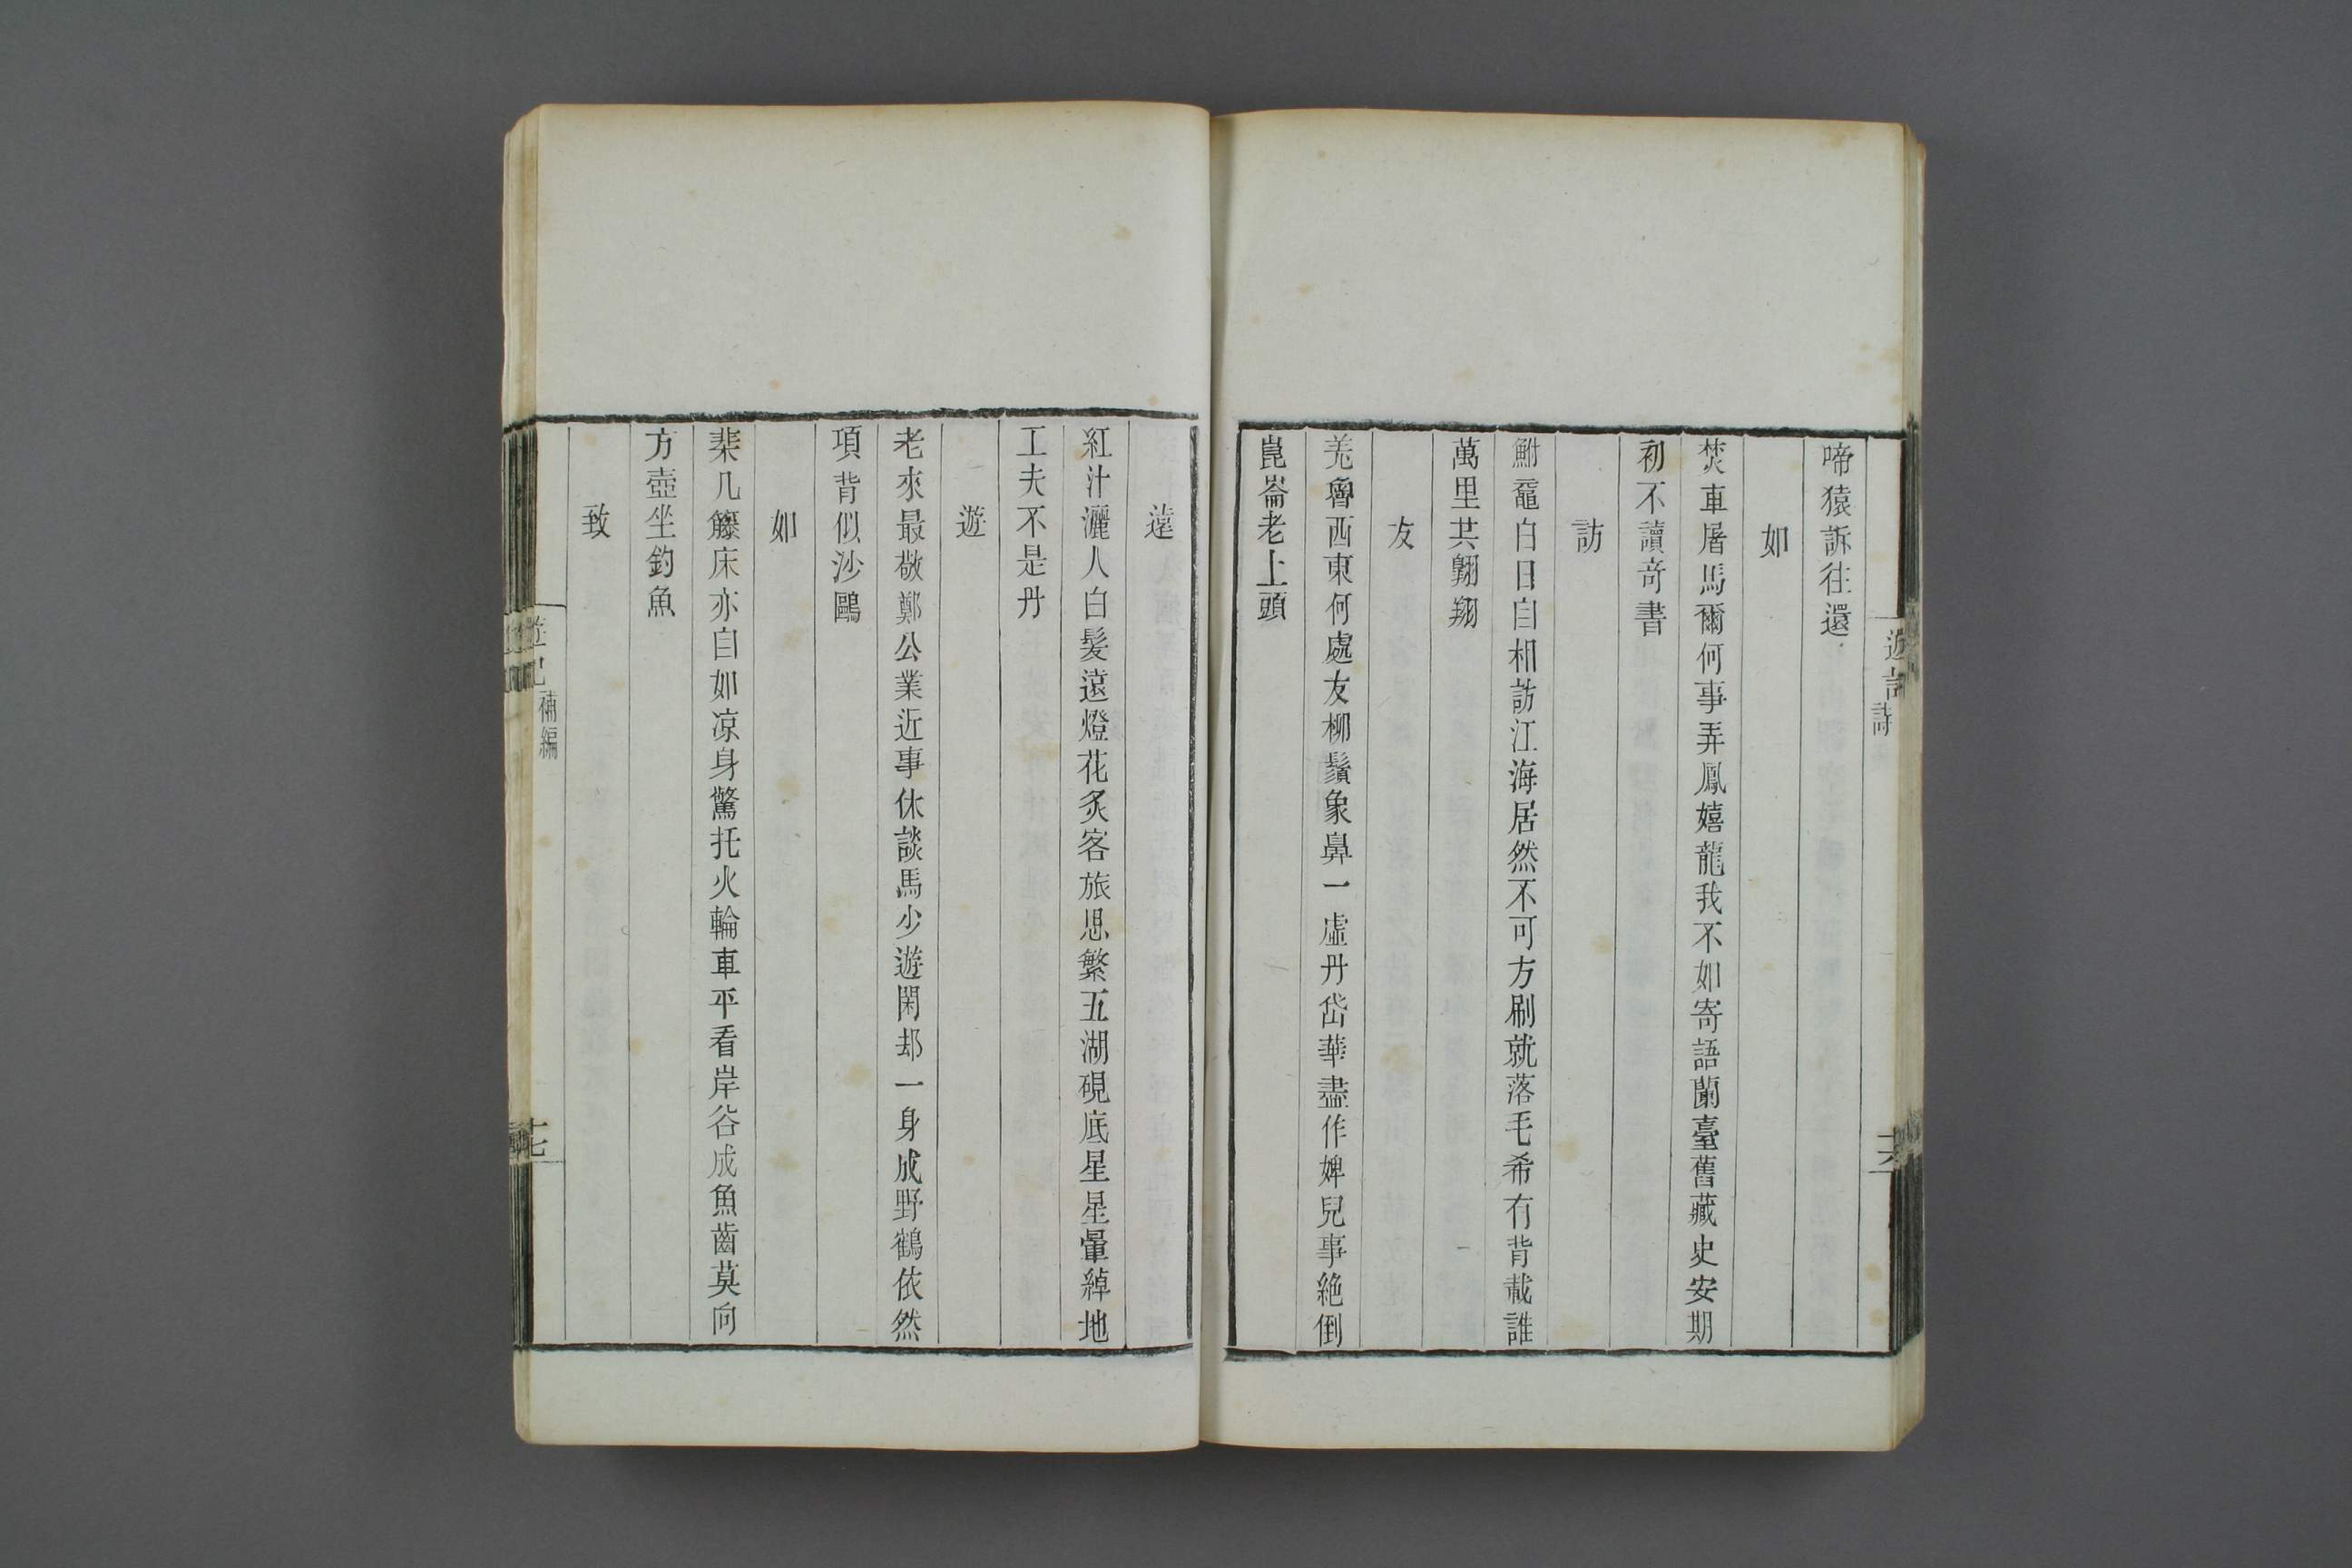 遊記
詩
十六
啼猿訴往還
如
焚車屠馬爾何事弄鳳嬉龍我不如寄語蘭臺舊藏史安期
初不讀奇書
訪
鮒黿白日自相訪江海居然不可方刷就落毛希有背載誰
萬里共翺翔
友
羌魯西東何處友柳鬚象鼻一虛丹岱華盡作婢兒事絶倒
崑崙老上頭
遠
紅汁灑人白髮遠燈花炙客旅思繁五湖硯底星星暈綽地
工夫不是丹
遊
老來最敬鄭公業近事休談馬少遊閑却一身成野鶴依然
項背似沙鷗
如
棐几籐床亦自如凉身驚托火輪車平看岸谷成魚齒莫向
方壺坐釣魚
致
補編
十七